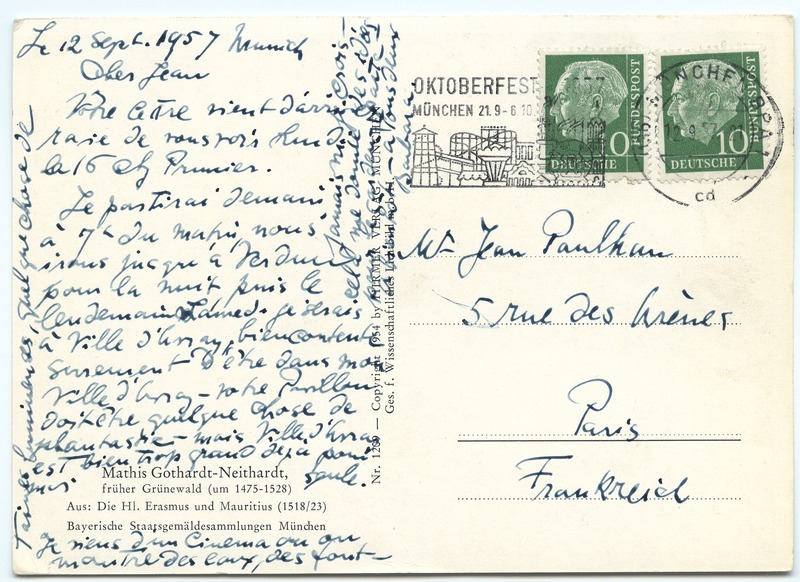 Le 12 Sept. 1957 Munich
Cher Jean
Votre lettre vient d'arriver
ravie de vous voir
le 16 chez Prunier.
Je partirai demain
à 7h du matin, nous
irons jusqu'à Verdun
pour la nuit puis le
lendemain Samedi je serais
à Ville d'Avray, bien contente
surement d'être dans mon
Ville d'Avray - votre Pavillon
doit être quelque chose de
phantastic - mais Ville d'Avray
est bien trop grand déjà pour
moi seule.
Je viens d'un Cinema ou on
montre des eaux, des font-
aines lumineuses, quelque chose de
jamais
Barbara
Mathis Gothardt-Neithardt,
früher Grünewald (um 1475-1528)
Aus: Die Hl. Erasmus und Mauritius (1518/23)
Bayerische Staatsgemäldesammlungen München
Nr. 1269 — Copyright 1954 by HIRMER VERLAG MÜNCHEN
Ges. f. Wissenschaftliches Lichtbild
OKTOBERFEST
MÜNCHEN 21.9-6.10
10
DEUTSCHE
BUNDESPOST
10
DEUTSCHE
BUNDESPOST
MÜNCHEN
12.9.57
cd
Mr Jean Paulhan
5 rue des Arènes
Paris
Frankreich